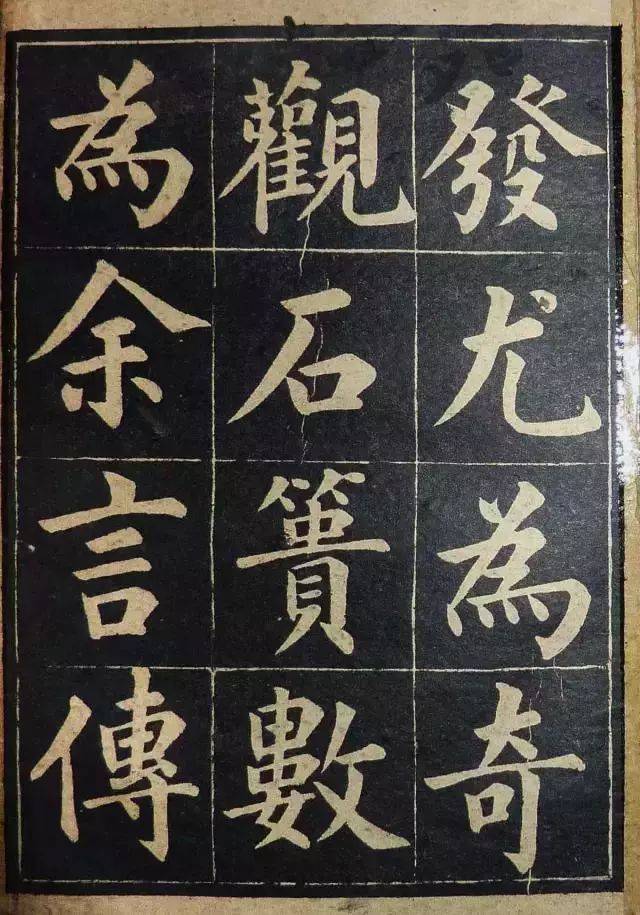 發尤為奇
觀石簣數
為余言傳